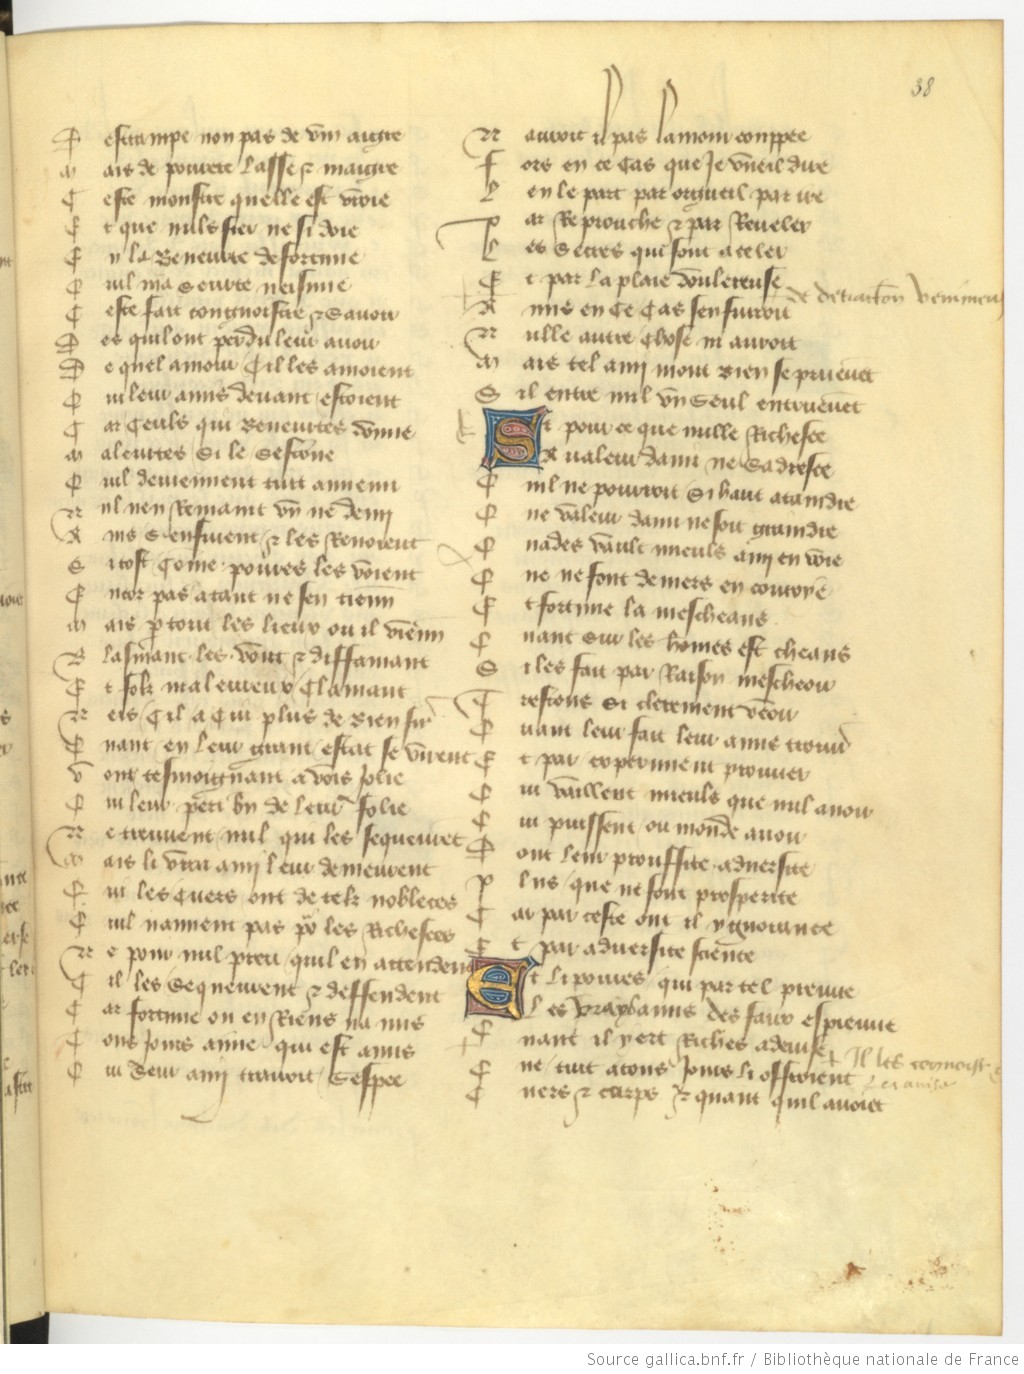 38
D estrampe non pas de vin aigre
M ais de povrete lasse & maigre
C este monstre quelle est vivre
E t que nuls fier ne si doie
E n la Beneurte de fortune
Q uil ma seurte neisune
C este fait congnoistre & savoir
D es quil ont perdu leur avoir
D e quel amour Cil les amoient
Q ui leur amis devant estoient
C ar Ceuls qui Beneurtes donne
M aleurtes si le sestonne
Q uil deviennent tuit annemi
N ul nen Remaint vn ne demi
A ins senfuient & les Renoient
S i tost Come povres les voient
E ncor pas atant ne sen tienn
M ais p tout les lieux ou il vienn
B lasmant les vont & diffamant
E t folz maleureux Clamant
N eis Cil a Cui plus de Bien fir
Q uant en leur grant estat se virent
V ont tesmoignant a vois Jolie
Q ui leur peri bn de leur folie
N e treuvent nul qui les sequeurēt
M ais li vrai ami leur demeurent
Q ui les Cuers ont de telz nobleces
Q uil nanment pas po les Richesces
N e pour nul preu quil en attendent
C il les Sequeurent & deffendent
C ar fortune ou en Riens na mis
C ous Jours aime qui est amis
Q ui seur ami trairoit sespee
N auroit il pas lamour couppee
F ors en ce Cas que Je vueil dire
L en le part par orgueil par ire
P ar Reprouche & par Reveler
L es Secres qui sont a celer
E t par la plaie doulereuse
de detraction venimeu
A mis en Ce Cas senfuiroit
N ulle autre Chose ni auroit
M ais tel ami mout Bien se pruevēt
S il entre mil vn Seul entruevēt
Et pour ce que nulle Richesce
A valeur dami ne Sadresce
Q uil ne pourroit Si haut ataindre
Q ue valeur dami ne soit graindre
Q uades vault mieuls ami en voie
Q ue ne font deniers en couroye
E t fortune la mescheans
Q uant Sur les homes est cheans
S i les fait par Raison mescheoir
T restous Si clerement veoir
Q uant leur fait leur amis trouv
E t par experiment prouver
Q ui vaillent mieuls que nul avoir
Q ui puissent ou monde avoir
D ont leur prouffite adversite
P lus que ne font prosperite
C ar par ceste ont il ygnorance
E t par adversite science
Et li povres qui par tel preuve
Les vrays amis des faux espreuve
Q uant il yert Riches a devise
Il les congnoist
& ravise
Q ue tuit a tous Jours li offroient
C uers & corps & quant quil avoiēt
Source gallica.bnf.fr / Bibliothèque nationale de France